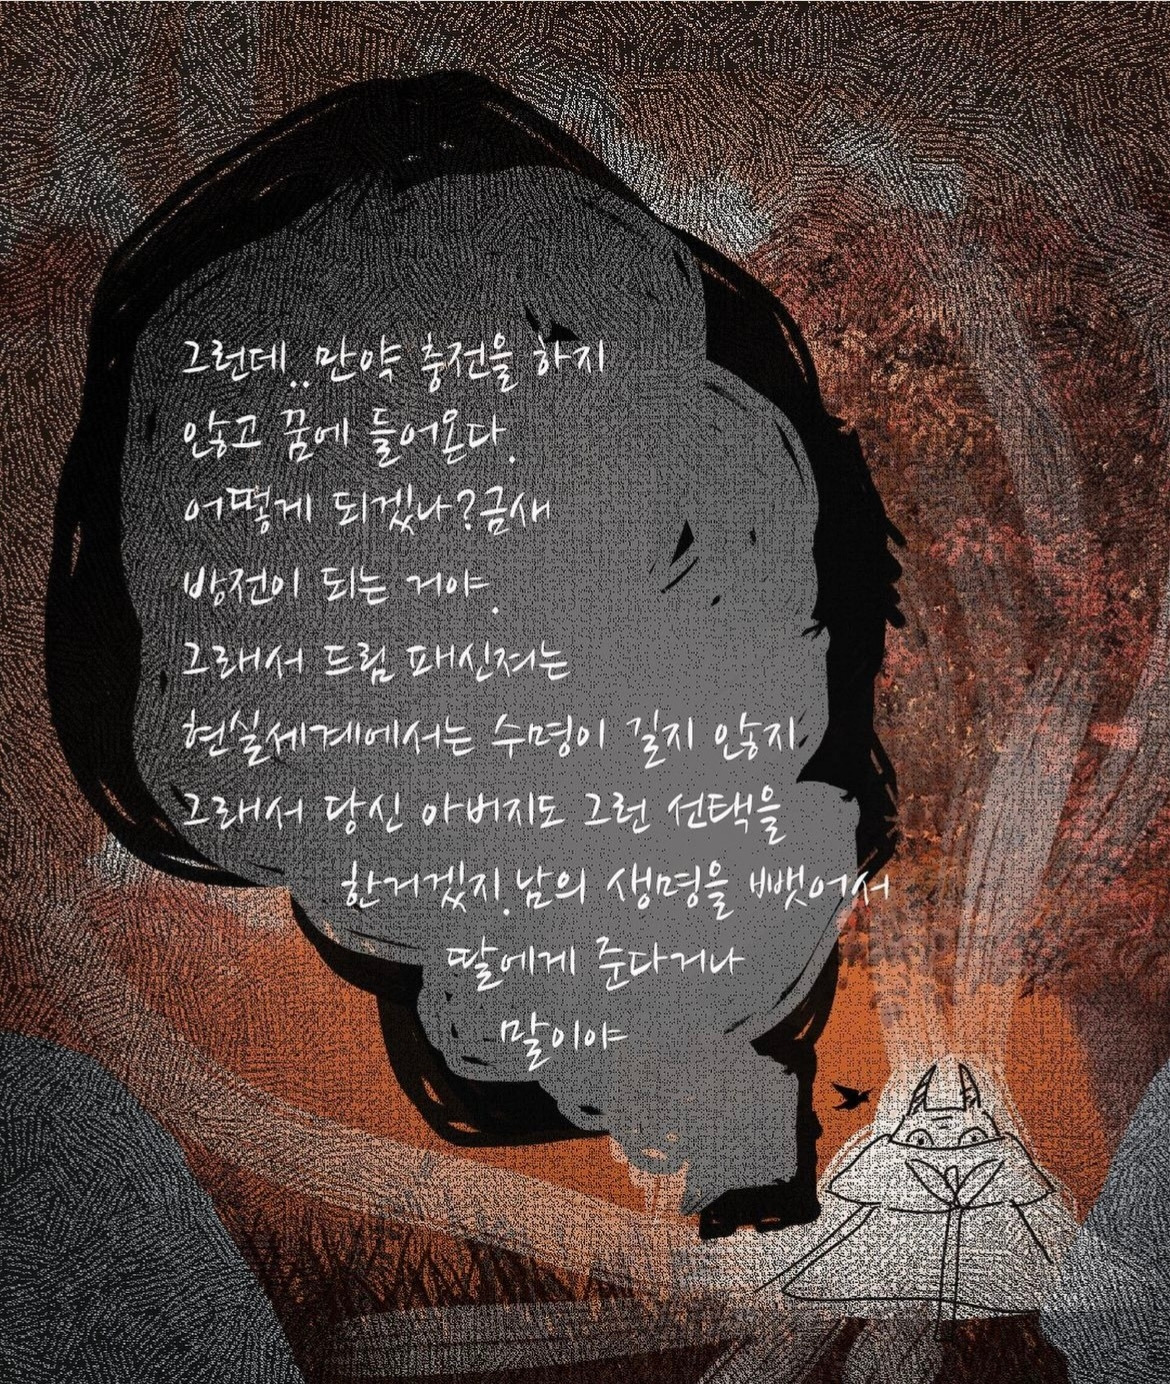 그런데..만약 충전을 하지
않고 꿈에 들어온다.
어떻게 되겠나?금새
방전이 되는 거야.
그래서 드림 패신져는
현실세계에서는 수명이 길지 않지
그래서 당신 아버지도 그런 선택을
한거겠지.남의 생명을 빼앗어서
딸에게 준다거나
말이야